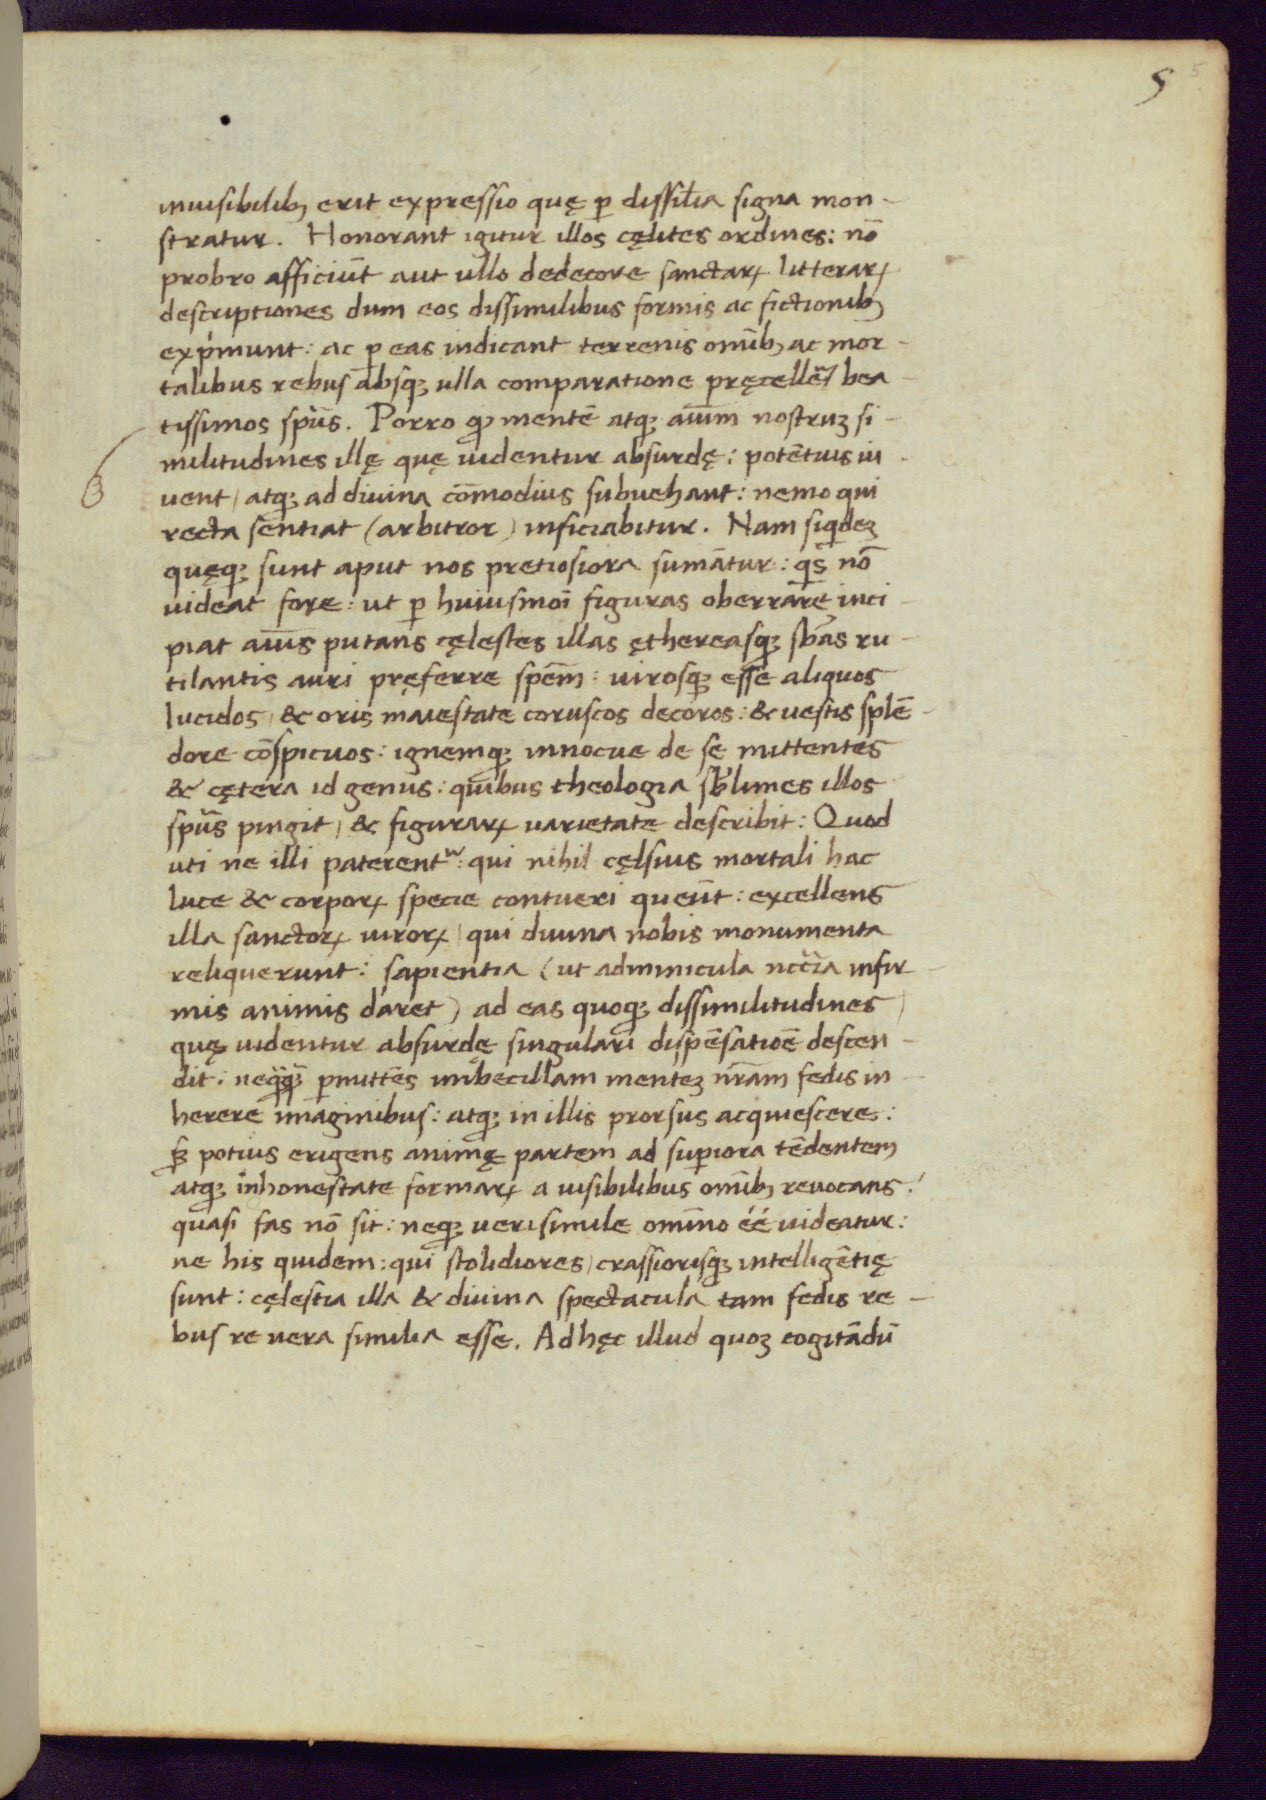 5 5
inuisibilibꝫ erit expressio quę ꝑ dissil̃ia signa mon-
stratur. Honorant igitur illos cęlites ordines: nō
probro afficiūt aut ullo dedecore sanctaꝝ litteraꝝ
descriptiones dum eos dissimilibus formis ac fictionibꝫ
exp̾munt: ac ꝑ eas indicant terrenis omībꝫ ac mor-
talibus rebus absqꝫ ulla comparatione pręcellē̃ bea-
tissimos spūs. Porro qꝫ mentē atqꝫ aīum nostruꝫ si-
militudines illę quę uidentur absurdę: potētius iu-
uent / atqꝫ ad diuina cōmodius subuehant: nemo qui
recta sentiat (arbitror) inficiabitur. Nam siqͥdeꝫ
quęqꝫ sunt aput nos pretiosiora sumātur: qͥs nō
uideat fore: ut ꝑ huiusmōi figuras oberrare inci-
piat aīus putans cęlestes illas ęthereasqꝫ sbās ru-
tilantis auri pręferre spēm: uirosqꝫ esse aliquos
lucidos / & oris maiestate coruscos decoros: & uestis splē-
dore cōspicuos: ignemqꝫ innocue de se mittentes
& cętera id genus: quibus theologia sb̾limes illos
spūs pingit / & figuraꝝ uarietate describit: Quod
uti ne illi paterentᷣ: qui nihil cęlsius mortali hac
luce & corpoꝝ specie contueri queūt: excellens
illa sanctoꝝ uiroꝝ / qui diuina nobis monumenta
reliquerunt: sapientia (ut adminicula nccͣ̃ia infir-
mis animis daret) ad eas quoqꝫ dissimilitudines /
quę uidentur absurdę singulari dispēsatioē descen-
dit: neqͣqͣꝫ ꝑmittēs imbecillam menteꝫ nr̄am fedis in-
herere imaginibus: atqꝫ in illis prorsus acquiescere:
sꝫ potius erigens animę partem ad suꝑiora tēdentem
atqꝫ inhonestate formaꝝ a uisibilibus omībꝫ reuocans:
quasi fas nō sit: neqꝫ uerisimile omīno éé uideatur:
ne his quidem: qui stolidiores / crassiorisqꝫ intelligētię
sunt: cęlestia illa & diuina spectacula tam fedis re-
bus re uera similia esse. Ad hęc illud quoꝫ cogitādū